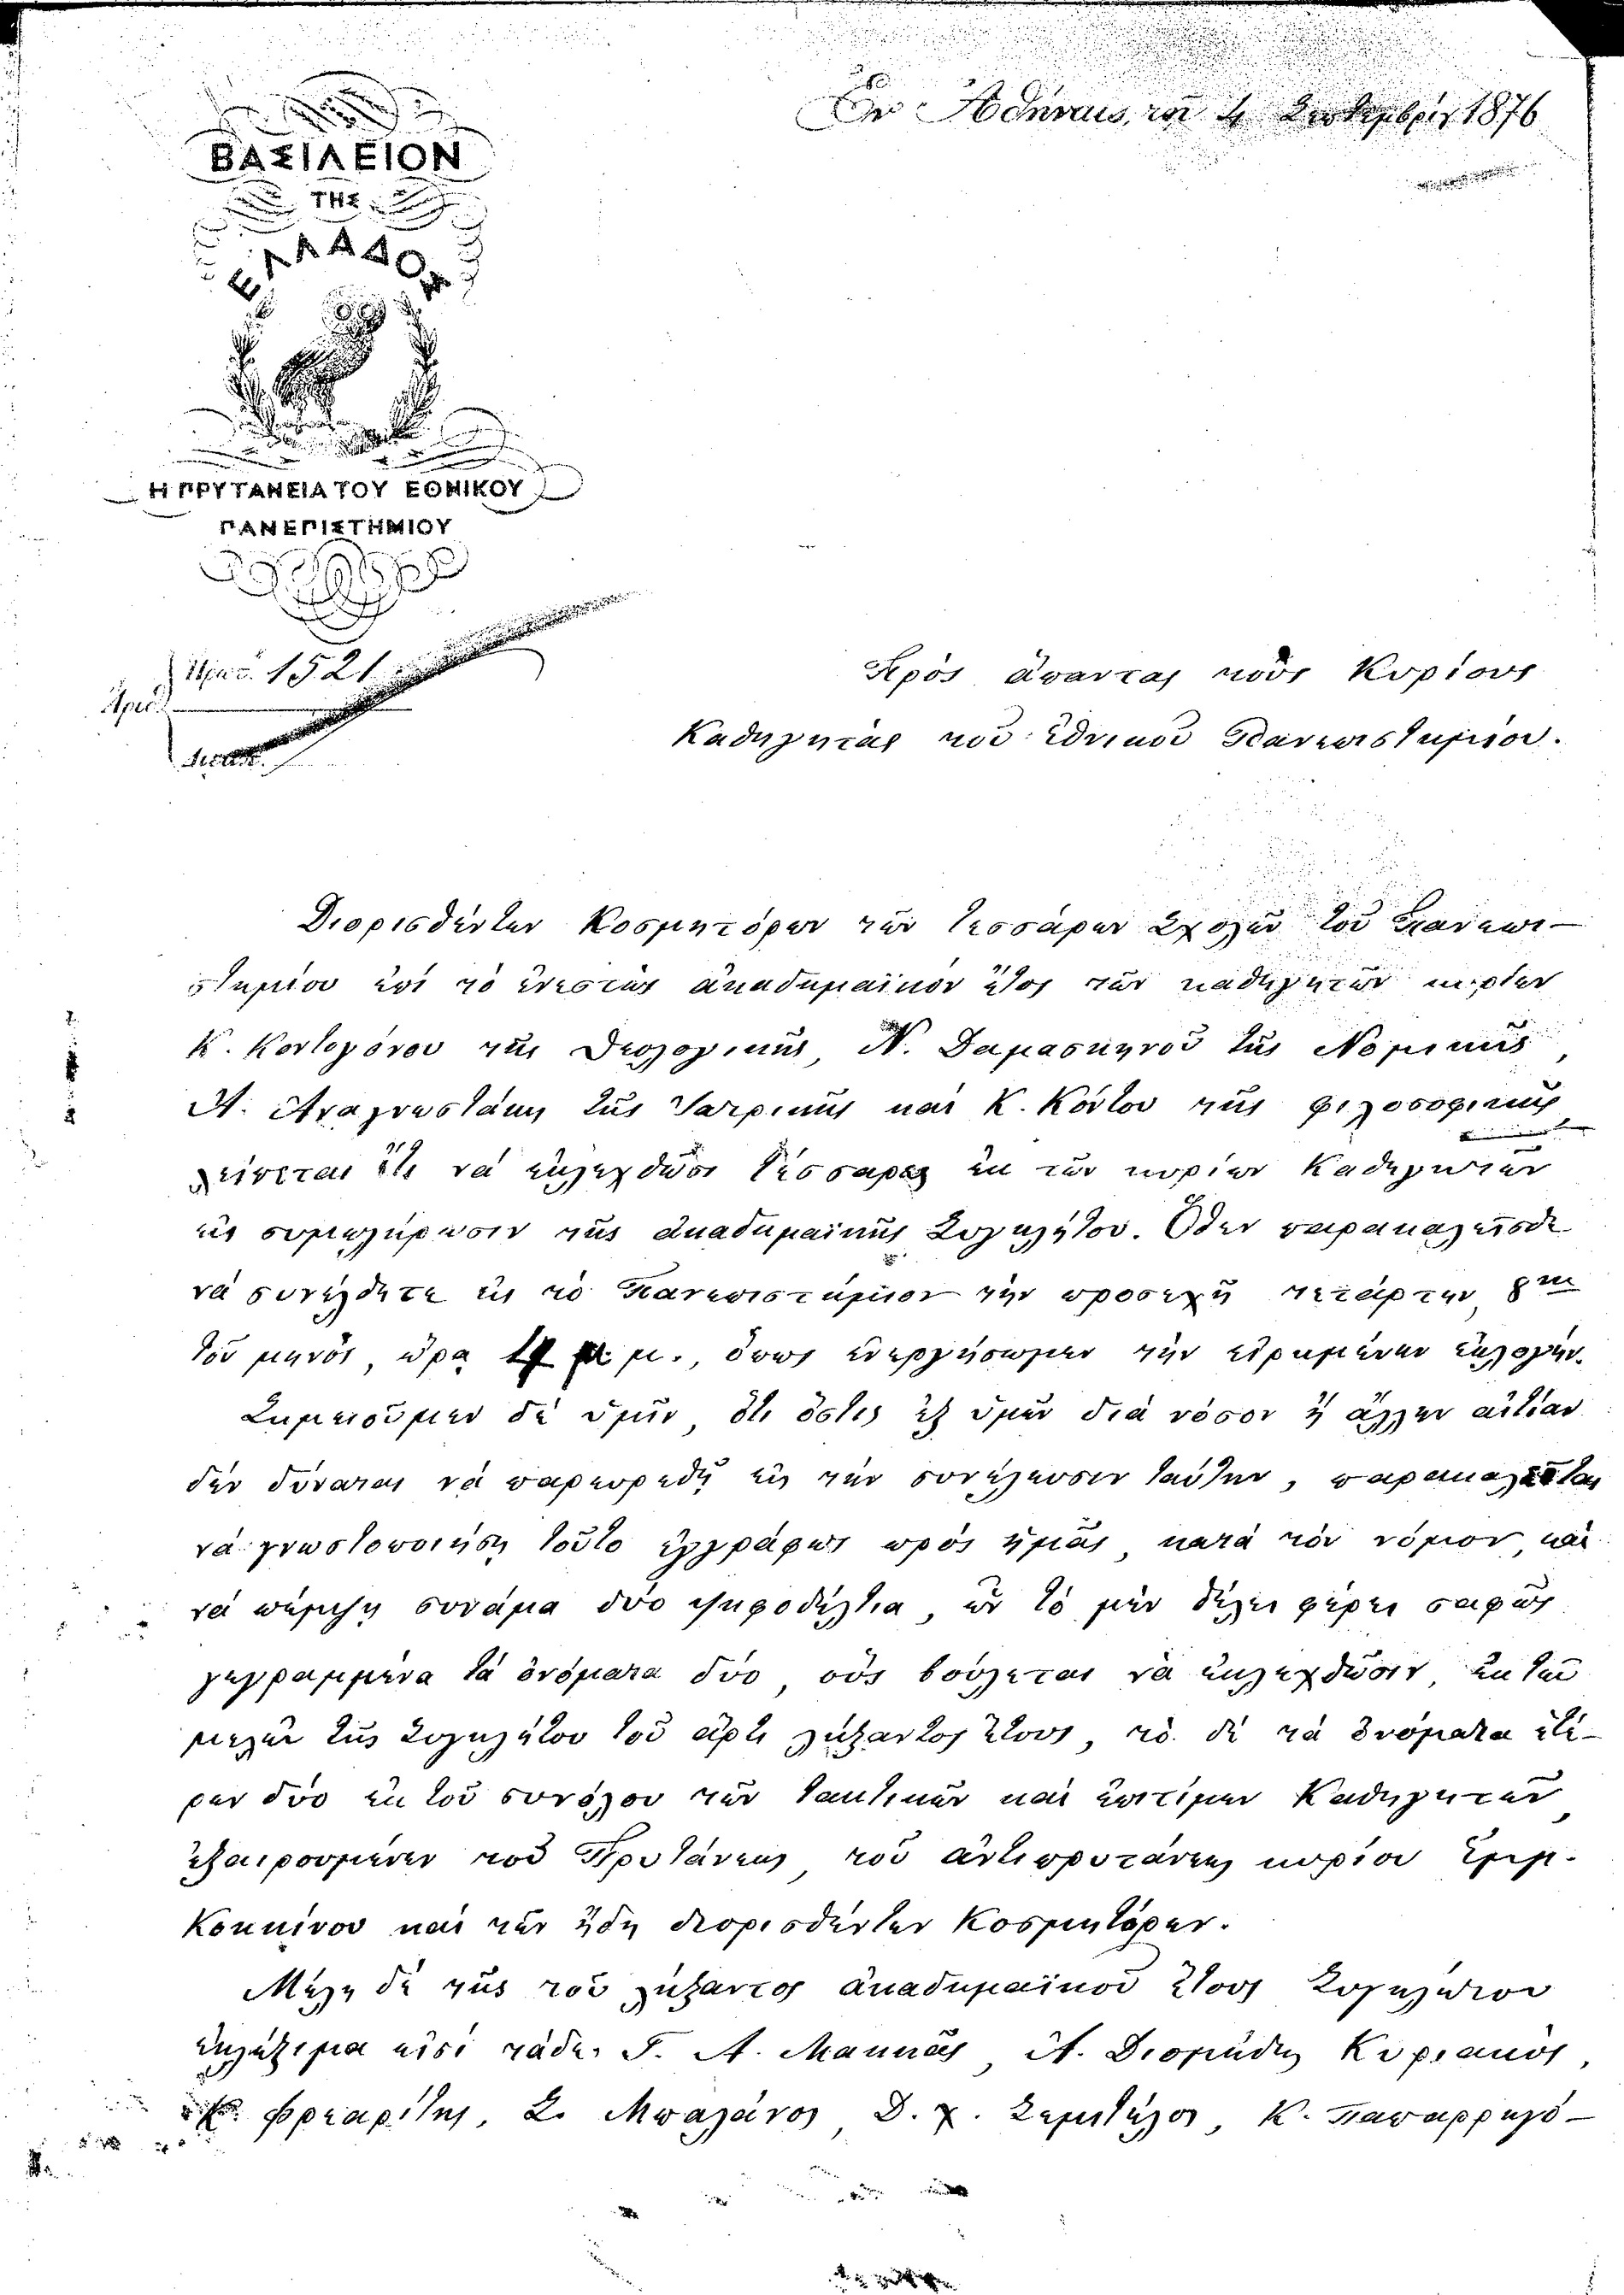 Ἐν Ἀθήναις, τῇ 4 Σεπτεμβρίου 1876
ΒΑΣΙΛΕΙΟΝ
ΤΗΣ
ΕΛΛΑΔΟΣ
Η ΠΡΥΤΑΝΕΙΑ ΤΟΥ ΕΘΝΙΚΟΥ
ΠΑΝΕΠΙΣΤΗΜΙΟΥ
1521
Ἀριθ.
Πρὸς ἅπαντας τοὺς Κυρίους
Καθηγητὰς τοῦ Ἐθνικοῦ Πανεπιστημίου.
Διορισθέντων Κοσμητόρων τῶν τεσσάρων Σχολῶν τοῦ Πανεπι-
στημίου ἐπὶ τὸ ἐνεστὼς ἀκαδημαϊκὸν ἔτος τῶν καθηγητῶν κυρίων
Κ. Κοντογόνου τῆς Θεολογικῆς, Ν. Δαμασκηνοῦ τῆς Νομικῆς,
Α. Αναγνωστάκη τῆς Ἰατρικῆς καὶ Κ. Κόντου τῆς φιλοσοφικῆς
λείπεται ἔτι νὰ ἐκλεχθῶσι τέσσαρες ἐκ τῶν κυρίων Καθηγητῶν
εἰς συμπλήρωσιν τῆς ἀκαδημαϊκῆς Συγκλήτου. Ὅθεν παρακαλεῖσθε
νὰ συνέλθητε εἰς τὸ Πανεπιστήμιον τὴν προσεχῆ τετάρτην 8ην
τοῦ μηνὸς, ὥρᾳ μ., ὅπως ἐνεργήσωμεν τὴν εἰρημένην ἐκλογήν.
Σημειοῦμεν δὲ ὑμῖν, ὅτι ὅστις ἐξ ὑμῶν διὰ νόσον ἢ ἄλλην αἰτίαν
δὲν δύναται νὰ παρευρεθῇ εἰς τὴν συνέλευσιν ταύτην, παρακαλεῖται
νὰ γνωστοποιήσῃ τοῦτο ἐγγράφως πρὸς ἡμᾶς, κατὰ τὸν νόμον, καὶ
νὰ πέμψῃ συνάμα δύο ψηφοδέλτια, ὧν τὸ μὲν θέλει φέρει σαφῶς
γεγραμμένα τὰ ὀνόματα δύο, οὓς βούλεται νὰ ἐκλεχθῶσιν, ἐκ τῶν
μελῶν τῆς Συγκλήτου τοῦ ἄρτι λήξαντος ἔτους, τὸ δὲ τὰ ὀνόματα ἑτέ-
ρων δύο ἐκ τοῦ συνόλου τῶν τακτικῶν καὶ ἐπιτίμων Καθηγητῶν,
ἐξαιρουμένων τοῦ Πρυτάνεως, τοῦ ἀντιπρυτάνεως κυρίου Ἐμμ.
Κοκκίνου καὶ τῶν ἤδη διορισθέντων Κοσμητόρων.
Μέλη δὲ τῆς τοῦ λήξαντος ἀκαδημαϊκοῦ ἔτους Συγκλήτου
ἐκλέξιμα εἰσὶ τάδε. Γ. Α. Μακκᾶς, Α. Διομήδης Κυριακὸς,
Κ. Φρεαρίτης, Σ. Μπαλάνος, Δ. Χ. Σεμιτέλος, Κ. Παπαρρηγό-